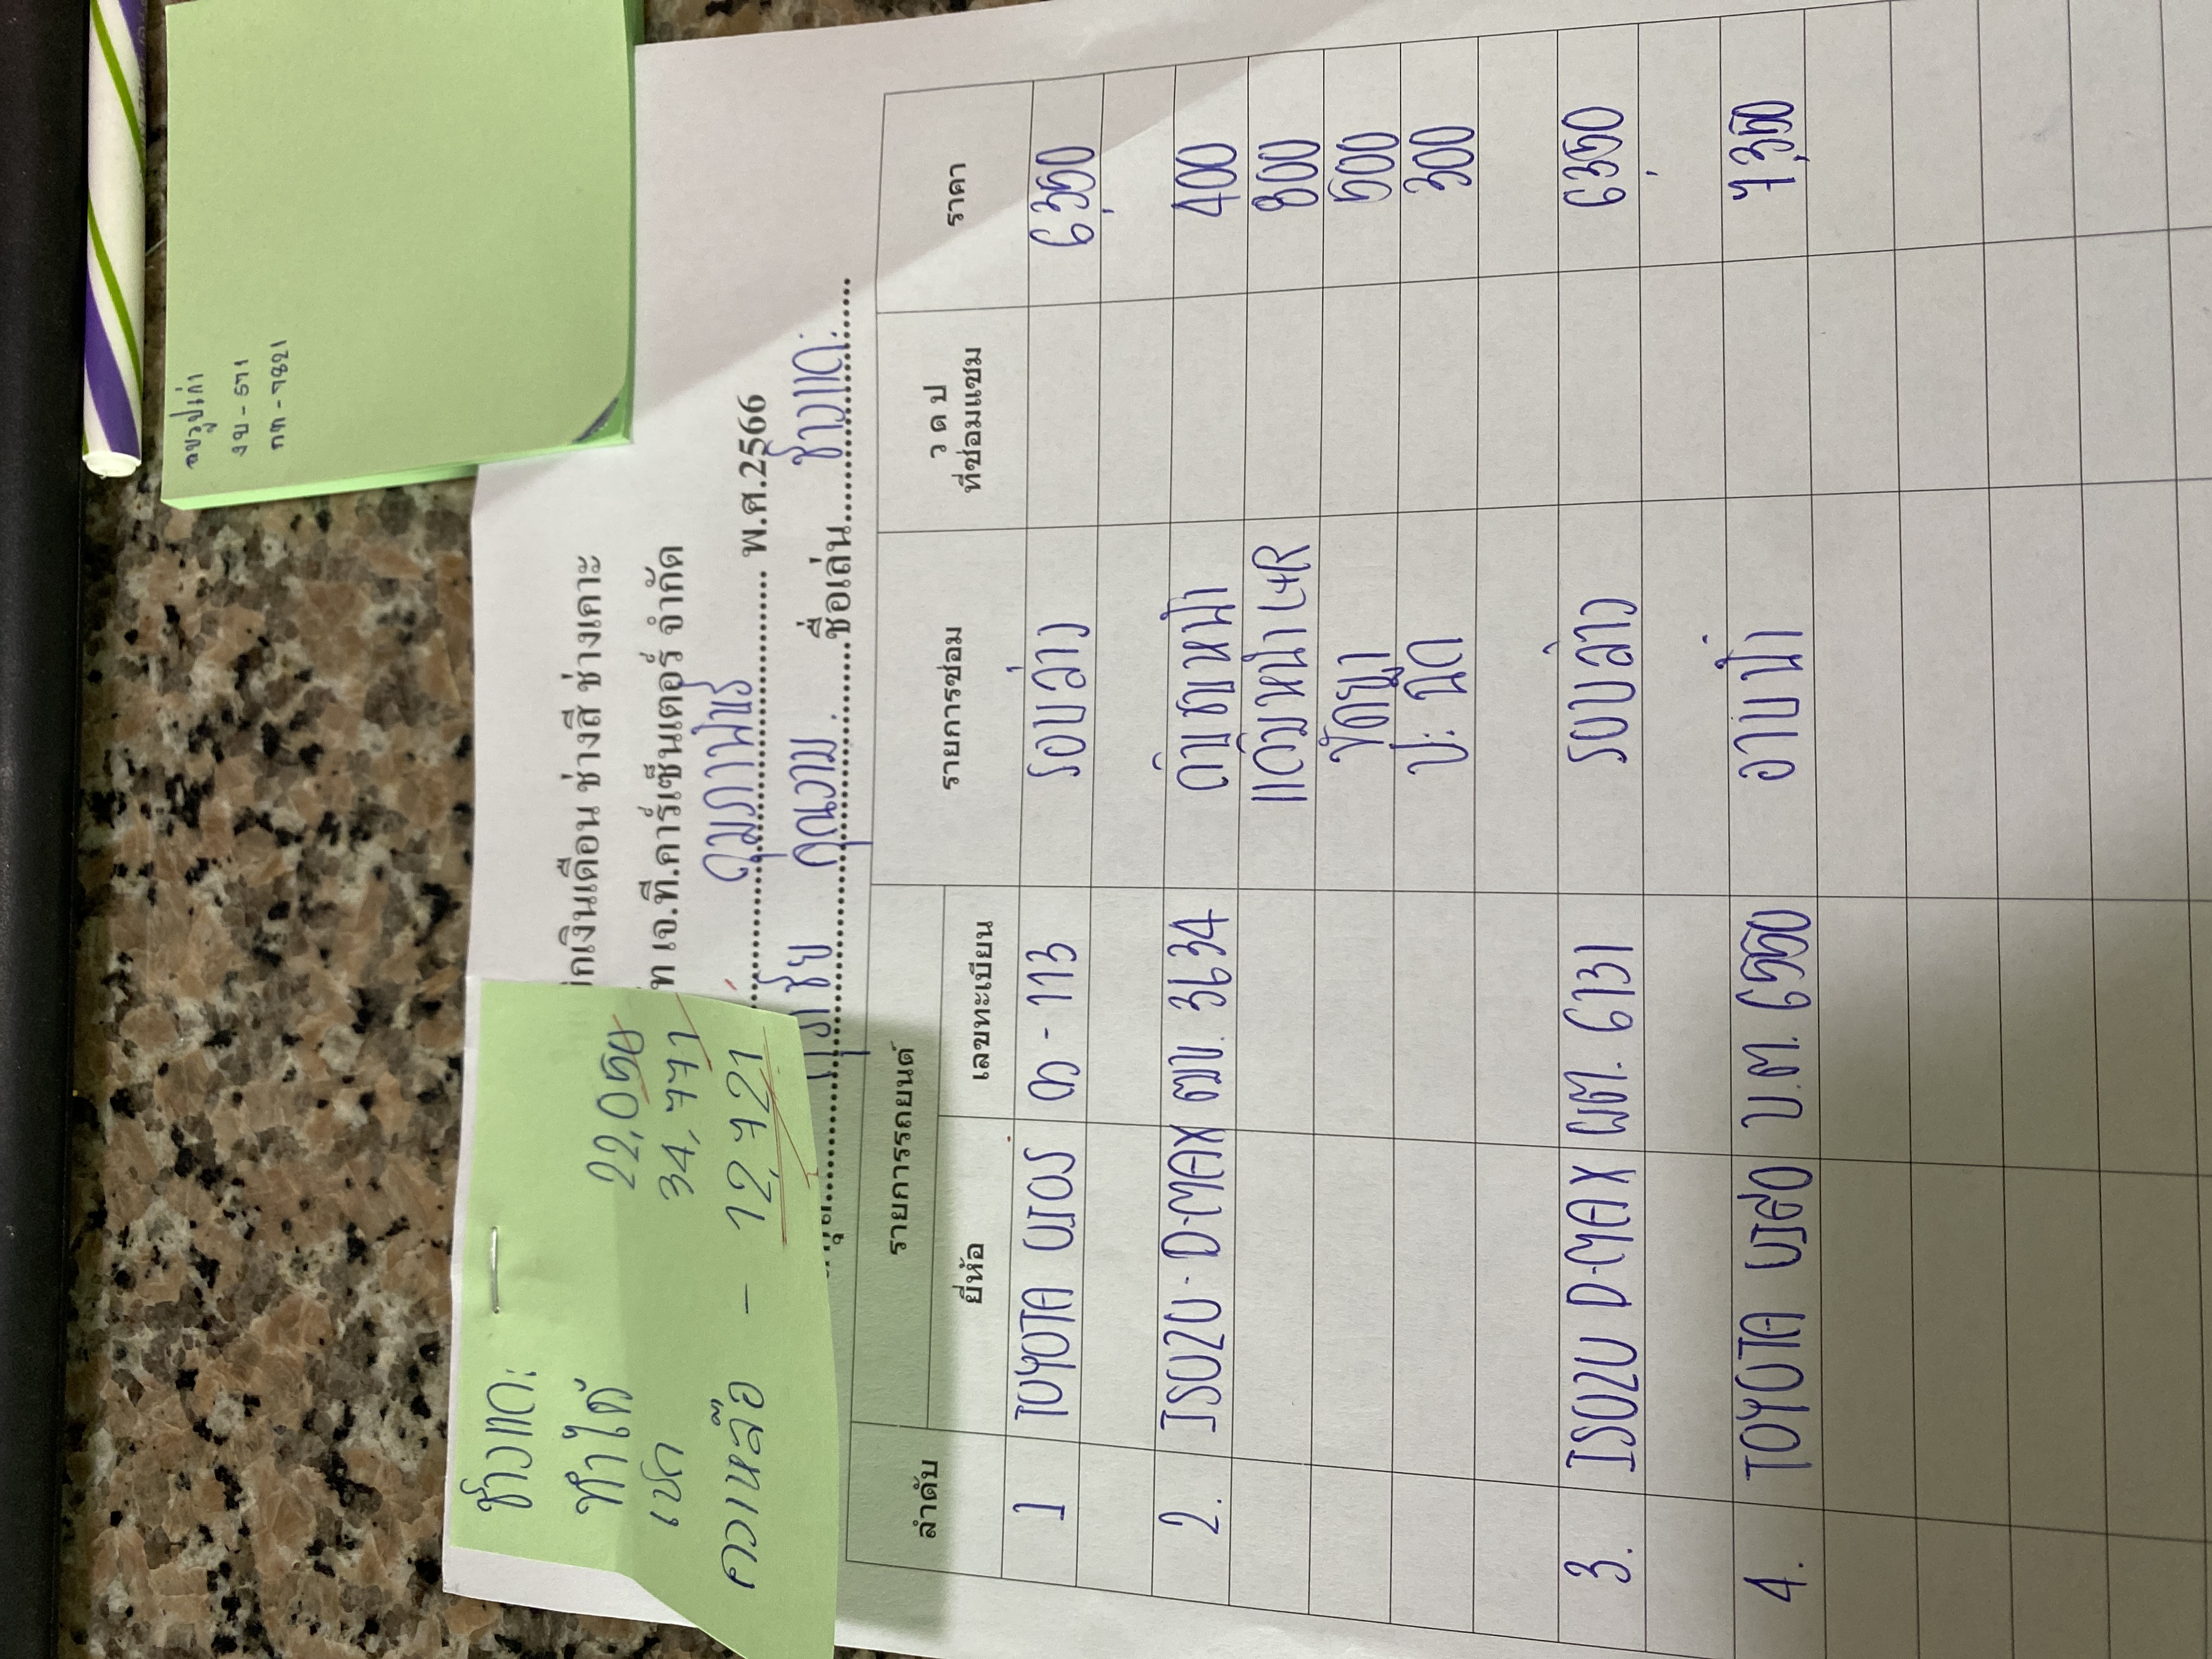 ลบรูปเก่า
งบ - 571
กท - 7821
ช้างแดะ
ทำได้ 22,050
เบิก 34,771
คงเหลือ - 12,721
กเงินเดือน ช่างสี ช่างเคาะ
ท เจ.ที.คาร์เซ็นเตอร์ จำกัด
กุมภาพันธ์ พ.ศ.2566
ชัย คุณงาม ชื่อเล่น ช้างแดะ
ลำดับ รายการรถยนต์ รายการซ่อม ว ด ป ที่ซ่อมแซม ราคา
ยี่ห้อ เลขทะเบียน
1 TOYOTA VIOS - 113 รอบล่าง 6,350
2. ISUZU - D-MAX ฒข. 3634 400
แก้มหน้า L+R 800
500
300
3. ISUZU D-MAX ผต. 6131 รอบล่าง 6,350
4. TOYOTA บ.ต. 6550 อาบน้ำ 7,350